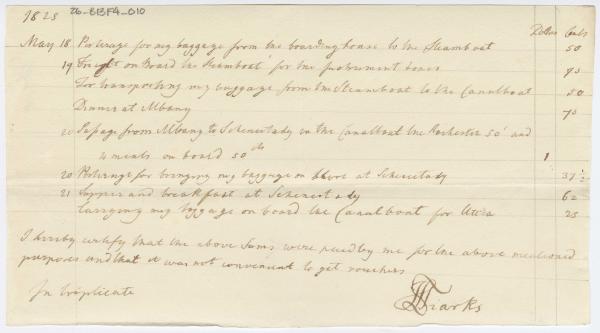 1825 26-BBF4-010
Dollars Cents
May 18. Porterage for my baggage from the boardinghouse to the Steamboat 50
19 Freight on Board the Steamboat for the Instrument boxes 75
For transporting my luggage from the Steamboat to the Canalboat 50
Dinner at Albany 75
20 Passage from Albany to Schenectady in the Canalboat the Rochester 50 and
4 meals on board 50 cts 1
20 Porterage for bringing my baggage on shore at Schenectady 37 1/2
21 Supper and breakfast at Schenectady 62
Carrying my baggage on board the Canalboat for Utica 25
I hereby certify that the above Sums were paid by me for the above mentioned
purposes and that it was not convenient to get vouchers
In triplicate
Tiarks